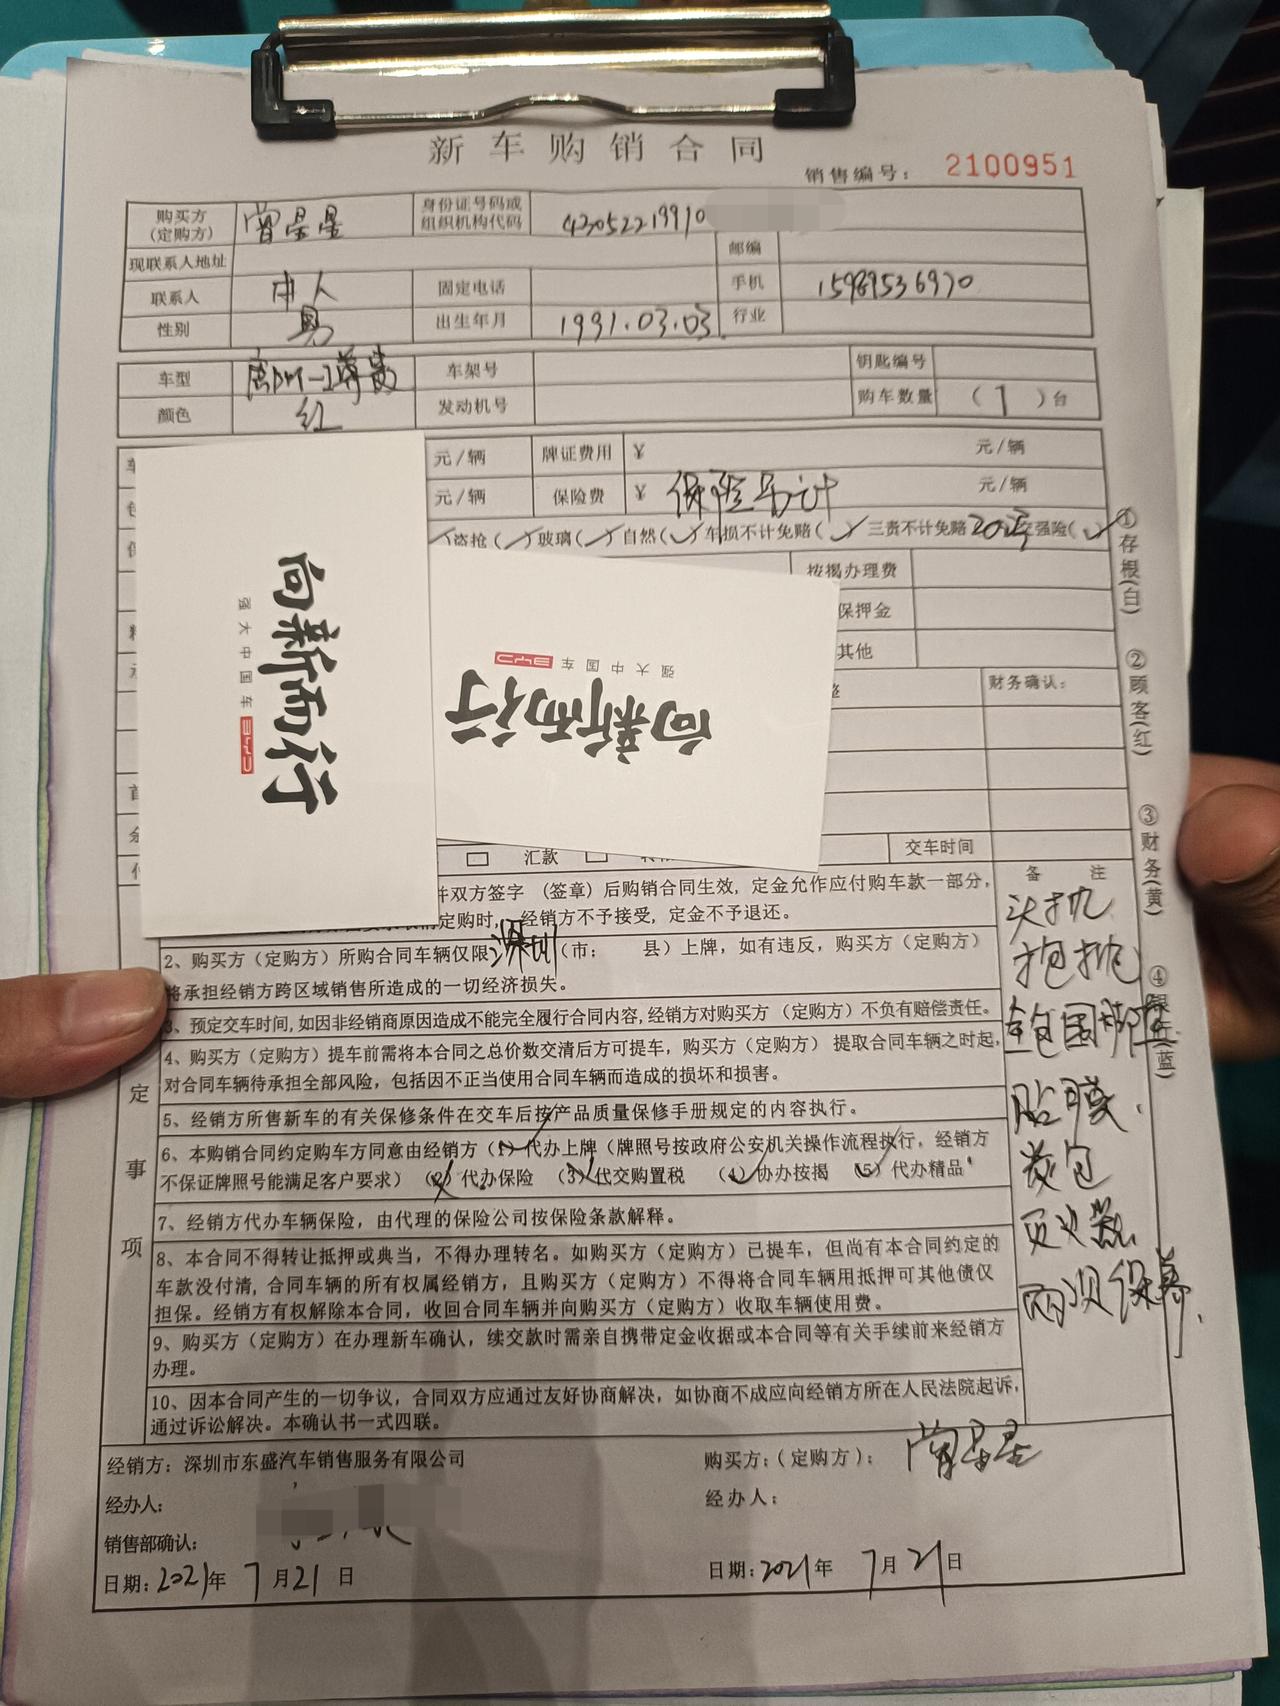 新车购销合同
销售编号： 2100951
购买方（定购方） 曾星星 身份证号码或组织机构代码 43052219910
现联系人地址 邮编
联系人 本人 固定电话 手机 15989536970
性别 男 出生年月 1991.03.03. 行业
车型 唐DM-i尊贵 车架号 钥匙编号
颜色 红 发动机号 购车数量 （1）台
元/辆 牌证费用 ¥ 元/辆
元/辆 保险费 ¥ 保险另计 元/辆
盗抢（✓）玻璃（✓）自然（✓）车损不计免赔（✓）三责不计免赔200万 交强险（✓
按揭办理费
保押金
其他
财务确认：
汇款
交车时间
向新而行
强大中国车 BYD
向新而行
强大中国车 BYD
并双方签字（签章）后购销合同生效，定金允作应付购车款一部分，
定购时，经销方不予接受，定金不予退还。
2、购买方（定购方）所购合同车辆仅限深圳（市： 县）上牌，如有违反，购买方（定购方）
将承担经销方跨区域销售所造成的一切经济损失。
3、预定交车时间，如因非经销商原因造成不能完全履行合同内容，经销方对购买方（定购方）不负有赔偿责任。
4、购买方（定购方）提车前需将本合同之总价数交清后方可提车，购买方（定购方）提取合同车辆之时起，
对合同车辆待承担全部风险，包括因不正当使用合同车辆而造成的损坏和损害。
5、经销方所售新车的有关保修条件在交车后按产品质量保修手册规定的内容执行。
6、本购销合同约定购车方同意由经销方（1）代办上牌（牌照号按政府公安机关操作流程执行，经销方
不保证牌照号能满足客户要求）（2）代办保险（3）代交购置税（4）协办按揭（5）代办精品
7、经销方代办车辆保险，由代理的保险公司按保险条款解释。
8、本合同不得转让抵押或典当，不得办理转名。如购买方（定购方）已提车，但尚有本合同约定的
车款没付清，合同车辆的所有权属经销方，且购买方（定购方）不得将合同车辆用抵押可其他债仅
担保。经销方有权解除本合同，收回合同车辆并向购买方（定购方）收取车辆使用费。
9、购买方（定购方）在办理新车确认，续交款时需亲自携带定金收据或本合同等有关手续前来经销方
办理。
10、因本合同产生的一切争议，合同双方应通过友好协商解决，如协商不成应向经销方所在人民法院起诉，
通过诉讼解决。本确认书一式四联。
定事项
备注
全包围脚垫
贴膜.
灭火器
两次保养.
①存根（白） ②顾客（红） ③财务（黄） ④（蓝）
经销方：深圳市东盛汽车销售服务有限公司
购买方：（定购方）： 曾星星
经办人：
经办人：
销售部确认：
日期：2021年 7月21日
日期：2021年 7月21日